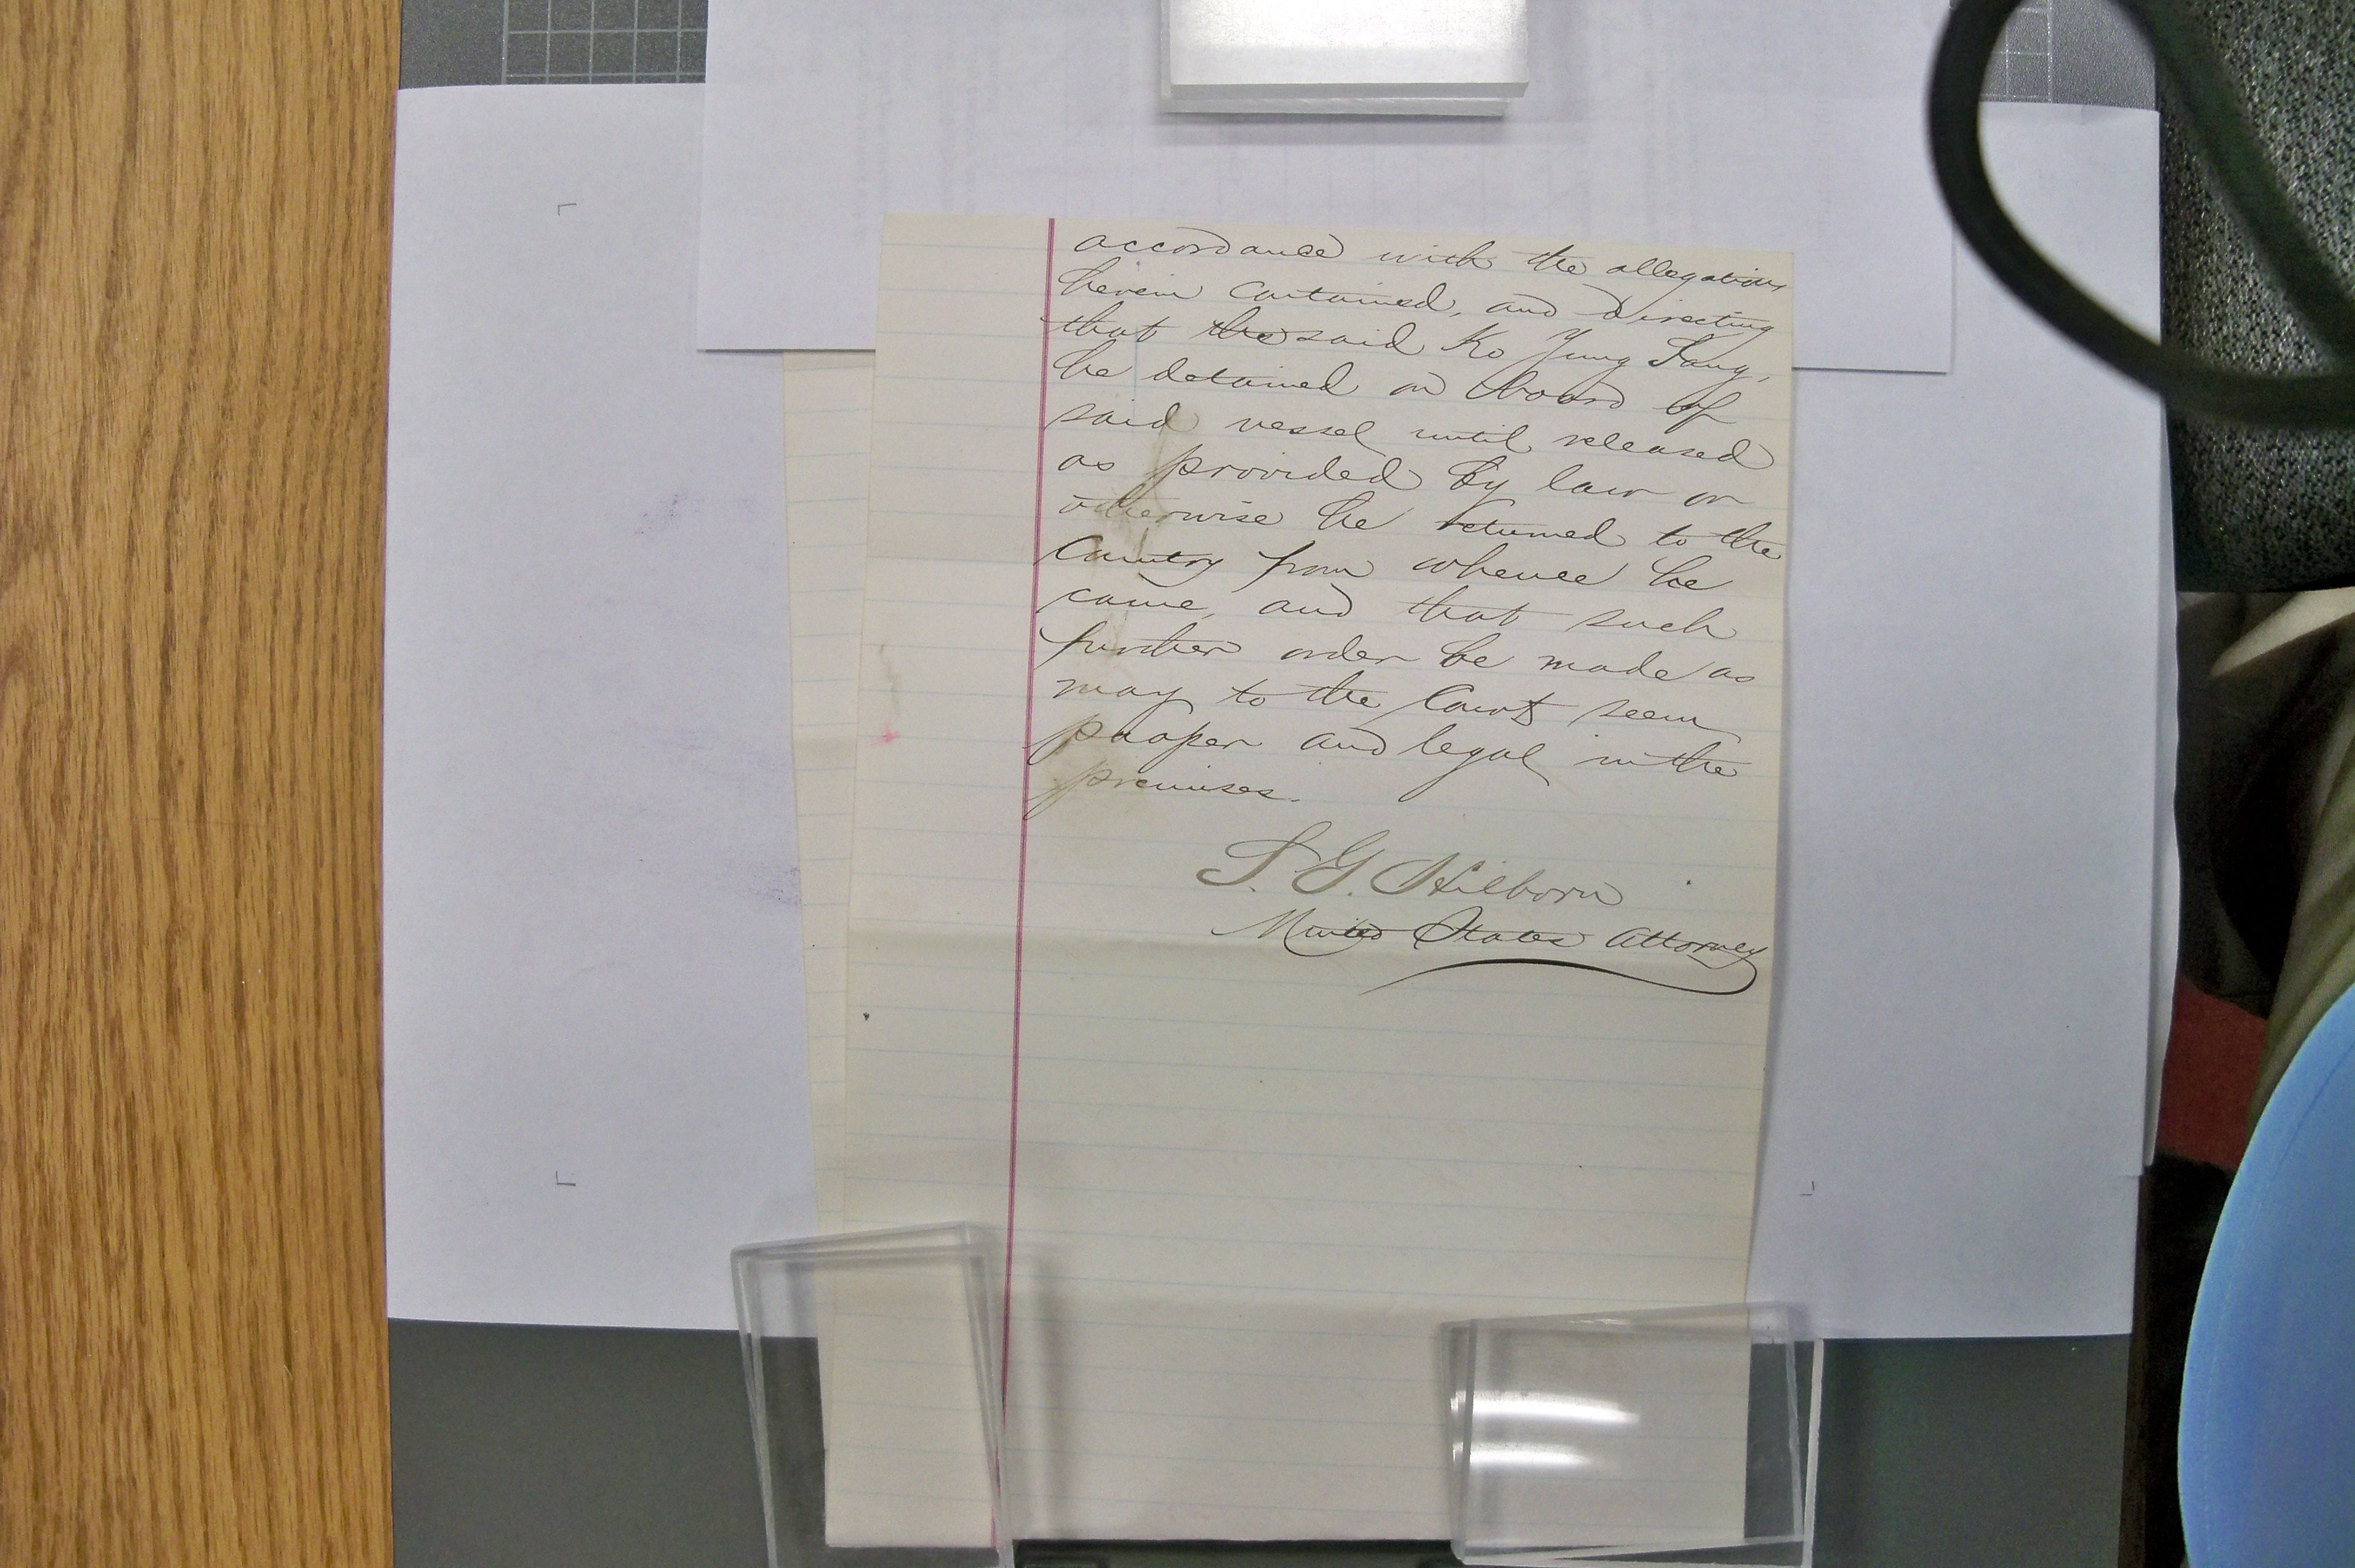 accordance with the allegations
herein contained, and directing
that the said Ko Jung Tang,
be detained on board of
said vessel until released
as provided by law or
otherwise be returned to the
Country from whence he
came, and that such
further order be made as
may to the Court seem
proper and legal in the
premises.
S. G. Hilborn
United States Attorney